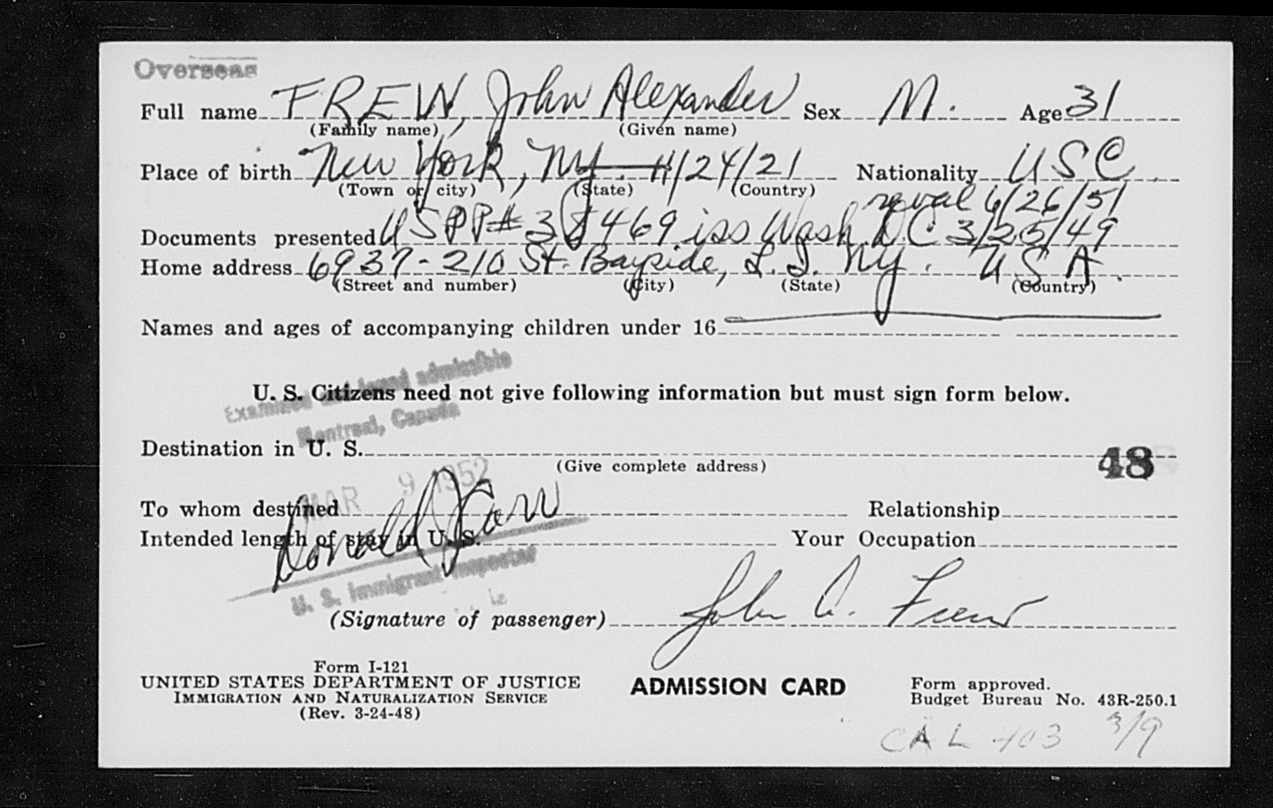 Overseas
Full name FREW, John Alexander Sex M. Age 31
(Family name) (Given name)
Place of birth New York, NY. 11/24/21 Nationality USC
(Town or city) (State) (Country)
6/26/51
Documents presented USPP# iss Wash DC 3/25/49
Home address 6937-210 St. Bayside, L.I. NY. USA.
(Street and number) (City) (State) (Country)
Names and ages of accompanying children under 16
Examined and found admissible
U. S. Citizens need not give following information but must sign form below.
Montreal, Canada
Destination in U. S.
(Give complete address)
48
MAR 9 1952
To whom destined Relationship
Intended length of stay in U. S. Your Occupation
U. S. Immigrant Inspector
(Signature of passenger) John A. Frew
Form I-121
UNITED STATES DEPARTMENT OF JUSTICE
IMMIGRATION AND NATURALIZATION SERVICE
(Rev. 3-24-48)
ADMISSION CARD
Form approved.
Budget Bureau No. 43R-250.1
CAL 403 3/9